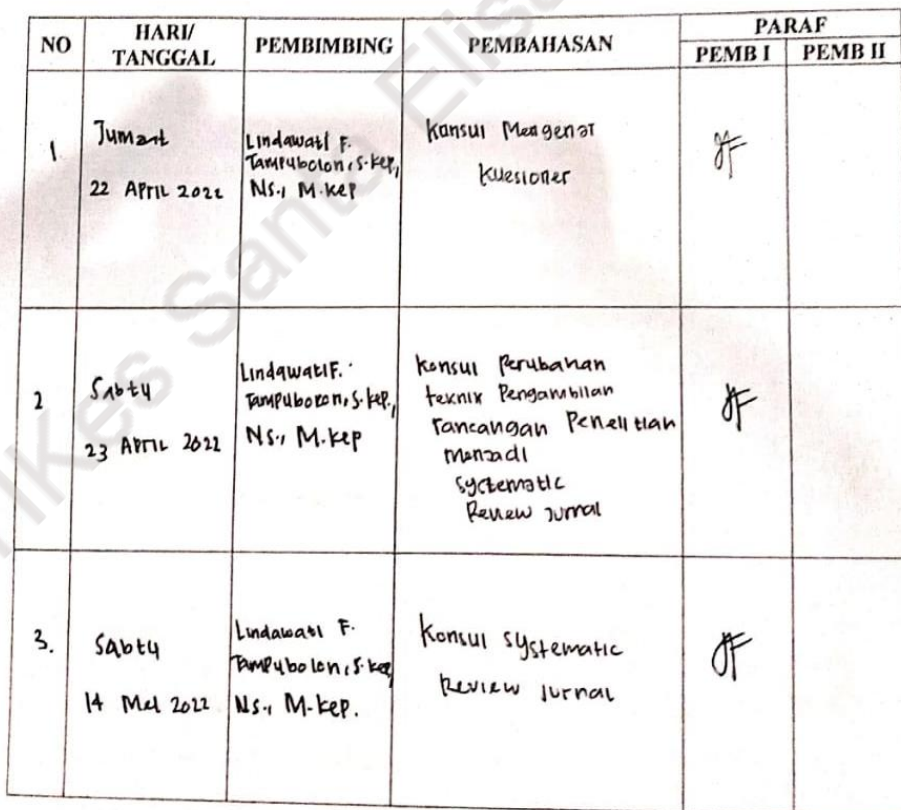 NO HARI/ TANGGAL PEMBIMBING PEMBAHASAN PARAF
PEMB I PEMB II
1 Jumat
22 April 2022
Lindawati F.
Tampubolon, S.kep,
Ns., M.kep
Konsul Mengenai
Kuesioner
2 Sabtu
23 April 2022
Lindawati F.
Tampubolon, S.kep.,
Ns., M.kep
Konsul Perubahan
teknik Pengambilan
rancangan Penelitian
menjadi
systematic
Review jurnal
3. Sabtu
14 Mei 2022
Lindawati F.
Tampubolon, S.kep
Ns., M.kep.
Konsul systematic
Review jurnal
IKes Santa Elisa